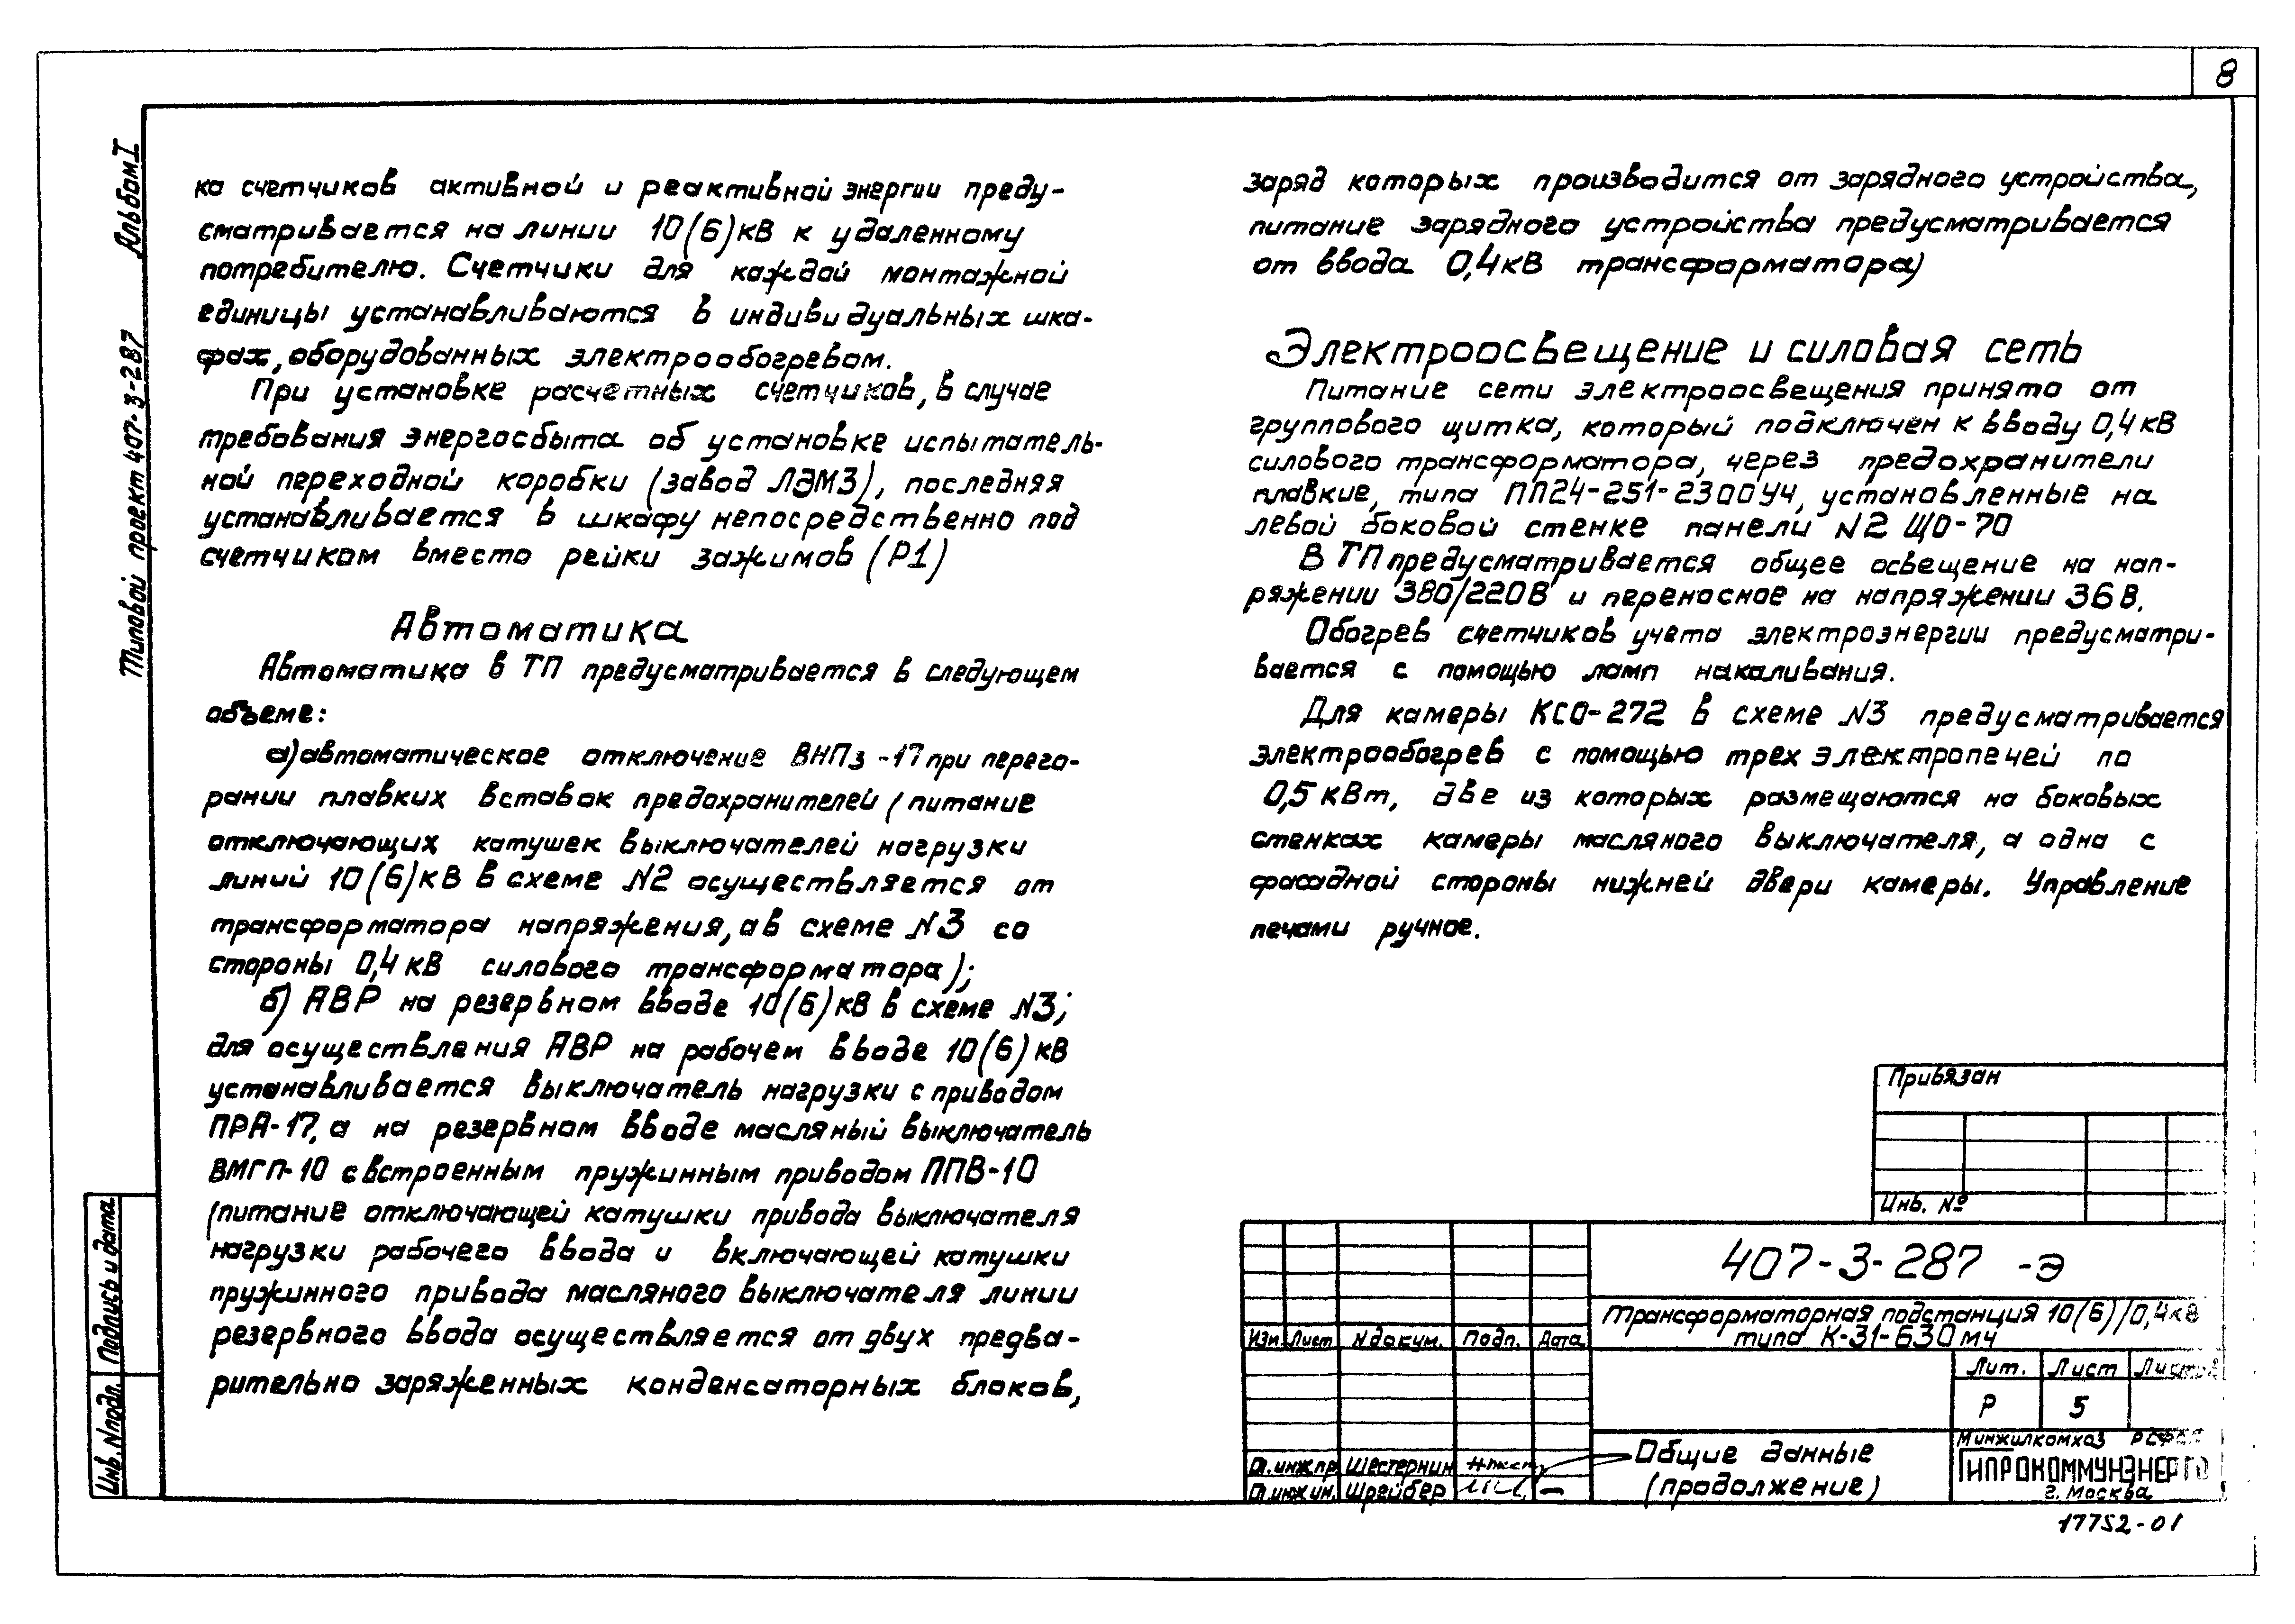 8
Альбом I
Типовой проект 407-3-287
ка счетчиков активной и реактивной энергии преду-
сматривается на линии 10(6)кВ к удаленному
потребителю. Счетчики для каждой монтажной
единицы устанавливаются в индивидуальных шка-
фах, оборудованных электрообогревом.
При установке расчетных счетчиков, в случае
требования энергосбыта об установке испытатель-
ной переходной коробки (завод ЛЭМЗ), последняя
устанавливается в шкафу непосредственно под
счетчиком вместо рейки зажимов (Р1)
Автоматика
Автоматика в ТП предусматривается в следующем
объеме:
а) автоматическое отключение ВНПз-17 при перего-
рании плавких вставок предохранителей (питание
отключающих катушек выключателей нагрузки
линий 10(6)кВ в схеме N2 осуществляется от
трансформатора напряжения, а в схеме N3 со
стороны 0,4кВ силового трансформатора);
б) АВР на резервном вводе 10(6)кВ в схеме N3;
для осуществления АВР на рабочем вводе 10(6)кВ
устанавливается выключатель нагрузки с приводом
ПРА-17, а на резервном вводе масляный выключатель
ВМГП-10 с встроенным пружинным приводом ППВ-10
(питание отключающей катушки привода выключателя
нагрузки рабочего ввода и включающей катушки
пружинного привода масляного выключателя линии
резервного ввода осуществляется от двух предва-
рительно заряженных конденсаторных блоков,
заряд которых производится от зарядного устройства,
питание зарядного устройства предусматривается
от ввода 0,4кВ трансформатора)
Электроосвещение и силовая сеть
Питание сети электроосвещения принято от
группового щитка, который подключен к вводу 0,4кВ
силового трансформатора, через предохранители
плавкие, типа ПП24-251-2300У4, установленные на
левой боковой стенке панели N2 ЩО-70
В ТП предусматривается общее освещение на нап-
ряжении 380/220В и переносное на напряжении 36В.
Обогрев счетчиков учета электроэнергии предусматри-
вается с помощью ламп накаливания.
Для камеры КСО-272 в схеме N3 предусматривается
электрообогрев с помощью трех электропечей по
0,5кВт, две из которых размещаются на боковых
стенках камеры масляного выключателя, а одна с
фасадной стороны нижней двери камеры. Управление
печами ручное.
Привязан
Инв. №
407-3-287 -Э
Трансформаторная подстанция 10(6)/0,4кВ
типа К-31-630м4
Изм. Лист N докум. Подп. Дата
Лит. Лист Листов
Р 5
Гл.инж.пр Шестернин
Гл.инж.ин. Шрейбер
Общие данные
(продолжение)
Минжилкомхоз РСФСР
ГИПРОКОММУНЭНЕРГО
г. Москва
17752-01
Подпись и дата
Инв. N подл.